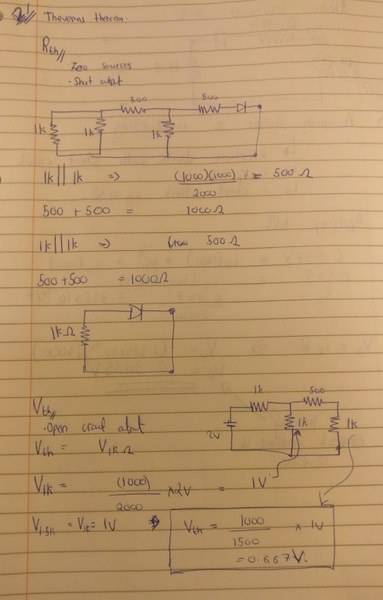 Thevenins theorem.
Rth//
Zero sources
· Shut output
500 500
1k 1k 1k
1k || 1k => (1000)(1000) / 2000 = 500 Ω
500 + 500 = 1000Ω
1k || 1k => 500 Ω
500+500 = 1000Ω
1kΩ
Vth//
· Open circuit output
1k 500
2V 1k 1k
Vth = V1kΩ
V1k = (1000) / 2000 × 2V = 1V
= V1k = 1V
Vth = 1000 / 1500 × 1V
= 0.667V.